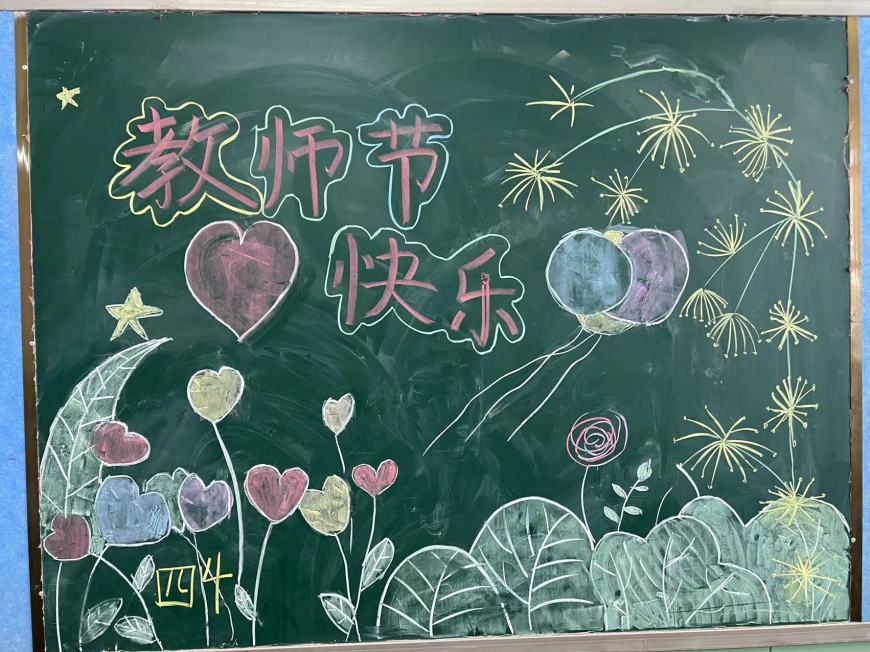 教师节
快乐
四4